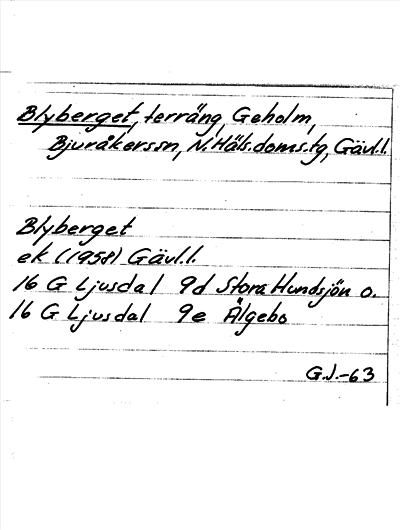 Blyberget, terräng, Geholm,
Bjuråkerssn, N.Häls.doms.tg, Gävl.l.
Blyberget
ek (1958) Gävl.l.
16 G Ljusdal 9d Stora Hundsjön o.
16 G Ljusdal 9e Älgebo
G.J.-63